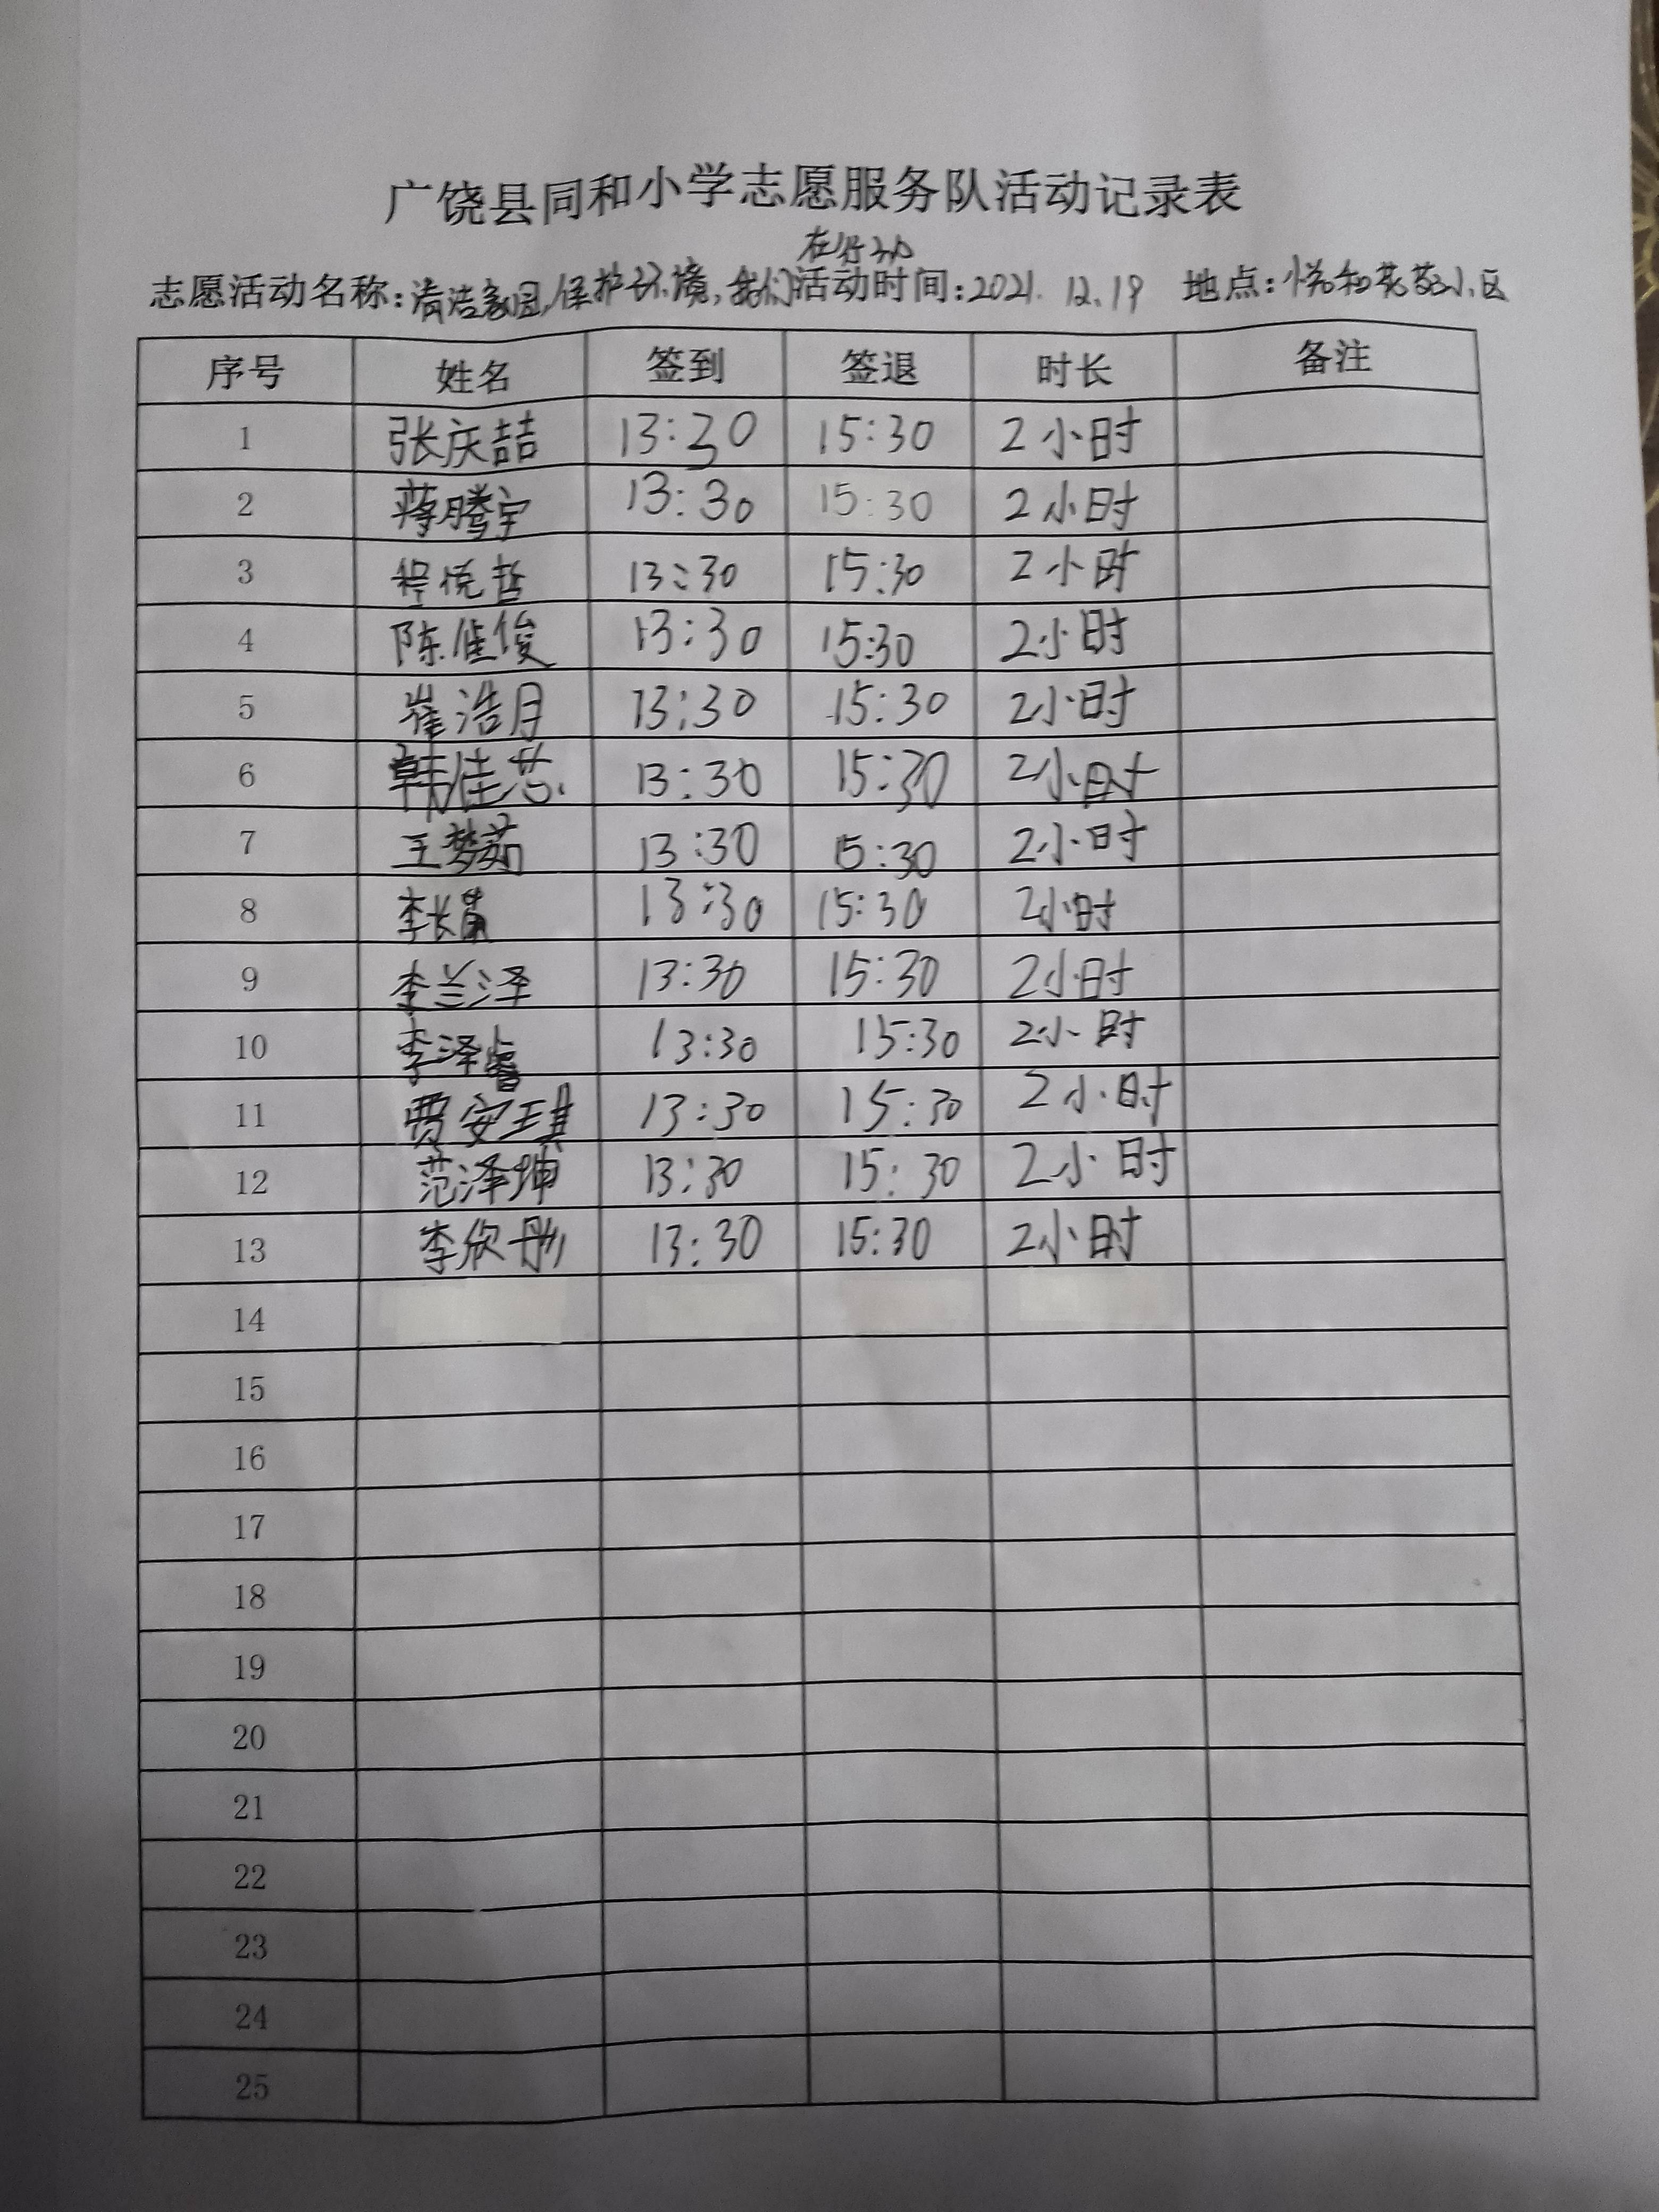 广饶县同和小学志愿服务队活动记录表
在行动
志愿活动名称:清洁家园,保护环境,我们活动时间:2021.12.19 地点:悦和花苑小区
序号 姓名 签到 签退 时长 备注
1 张庆喆 13:30 15:30 2小时
2 蒋腾宇 13:30 15:30 2小时
3 程悦哲 13:30 15:30 2小时
4 陈佳俊 13:30 15:30 2小时
5 崔浩月 13:30 15:30 2小时
6 韩佳芯 13:30 15:30 2小时
7 王梦茹 13:30 15:30 2小时
8 李长 13:30 15:30 2小时
9 李兰泽 13:30 15:30 2小时
10 李泽睿 13:30 15:30 2小时
11 贾安琪 13:30 15:30 2小时
12 范泽坤 13:30 15:30 2小时
13 李欣彤 13:30 15:30 2小时
14
15
16
17
18
19
20
21
22
23
24
25